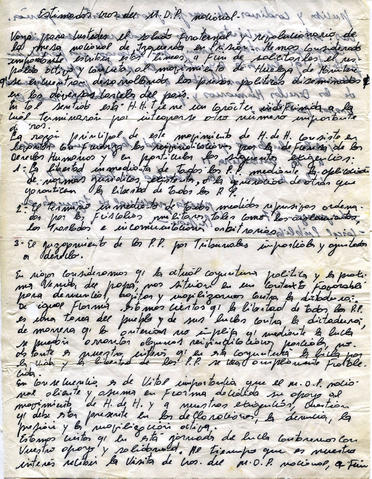 Estimados cros. del M.D.P. nacional.
Vaya para ustedes el saludo fraternal y revolucionario de
la mesa nacional de Izquierda en Prisión. Hemos considerado
importante escribir estas líneas a fin de solicitarles el res-
paldo activo y
que se encuentran desarrollando los presos políticos diseminados
en las diversas cárceles del país.
En tal sentido esta H.H. tiene un carácter indefinida a la
cual terminarán por integrarse otro número importante
de cros.
La razón principal de este movimiento de H. de H. consiste en
levantar con fuerza las reivindicaciones por la defensa de los
Derechos Humanos y en particular las siguientes exigencias:
1.- La libertad inmediata de todos los P.P. mediante la aplicación
de normas jurídicas existentes o la generación de otras que
garanticen la libertad de todos los P.P.
2.- El término inmediato de todas medidas represivas ordena-
das por las Fiscalías militares, tales como los
los traslados e incomunicaciones arbitrarias.
3.- El juzgamiento de los P.P. por Tribunales imparciales y ajustados
a derecho.
En rigor consideramos q' la actual coyuntura política y la próxi-
ma venida del papa, nos sitúan en un contexto favorable
para denunciar, y movilizarnos contra la dictadura.
De igual forma estamos ciertos q' la libertad de todos los P.P.
es una tarea del pueblo y de sus luchas contra la dictadura,
de manera q' lo anterior no implica q' mediante la lucha
se puedan arrancar algunas reivindicaciones parciales, no
obstante es nuestro interés q' en esta coyuntura la lucha por
la vida y la libertad de los P.P. se vea ampliamente fortale-
cida.
En consecuencia es de vital importancia que el M.D.P. nacio-
nal oriente y asuma en forma decidida su apoyo al
movimiento de H. de H. y a nuestras exigencias, cuestión
q' debe estar presente en las declaraciones, la denuncia, la
presión y la movilización activa.
Estamos ciertos q' en esta jornada de lucha contaremos con
vuestro apoyo y solidaridad. Al tiempo que es nuestro
interés recibir la visita de cros. del M.D.P. nacional, a fin